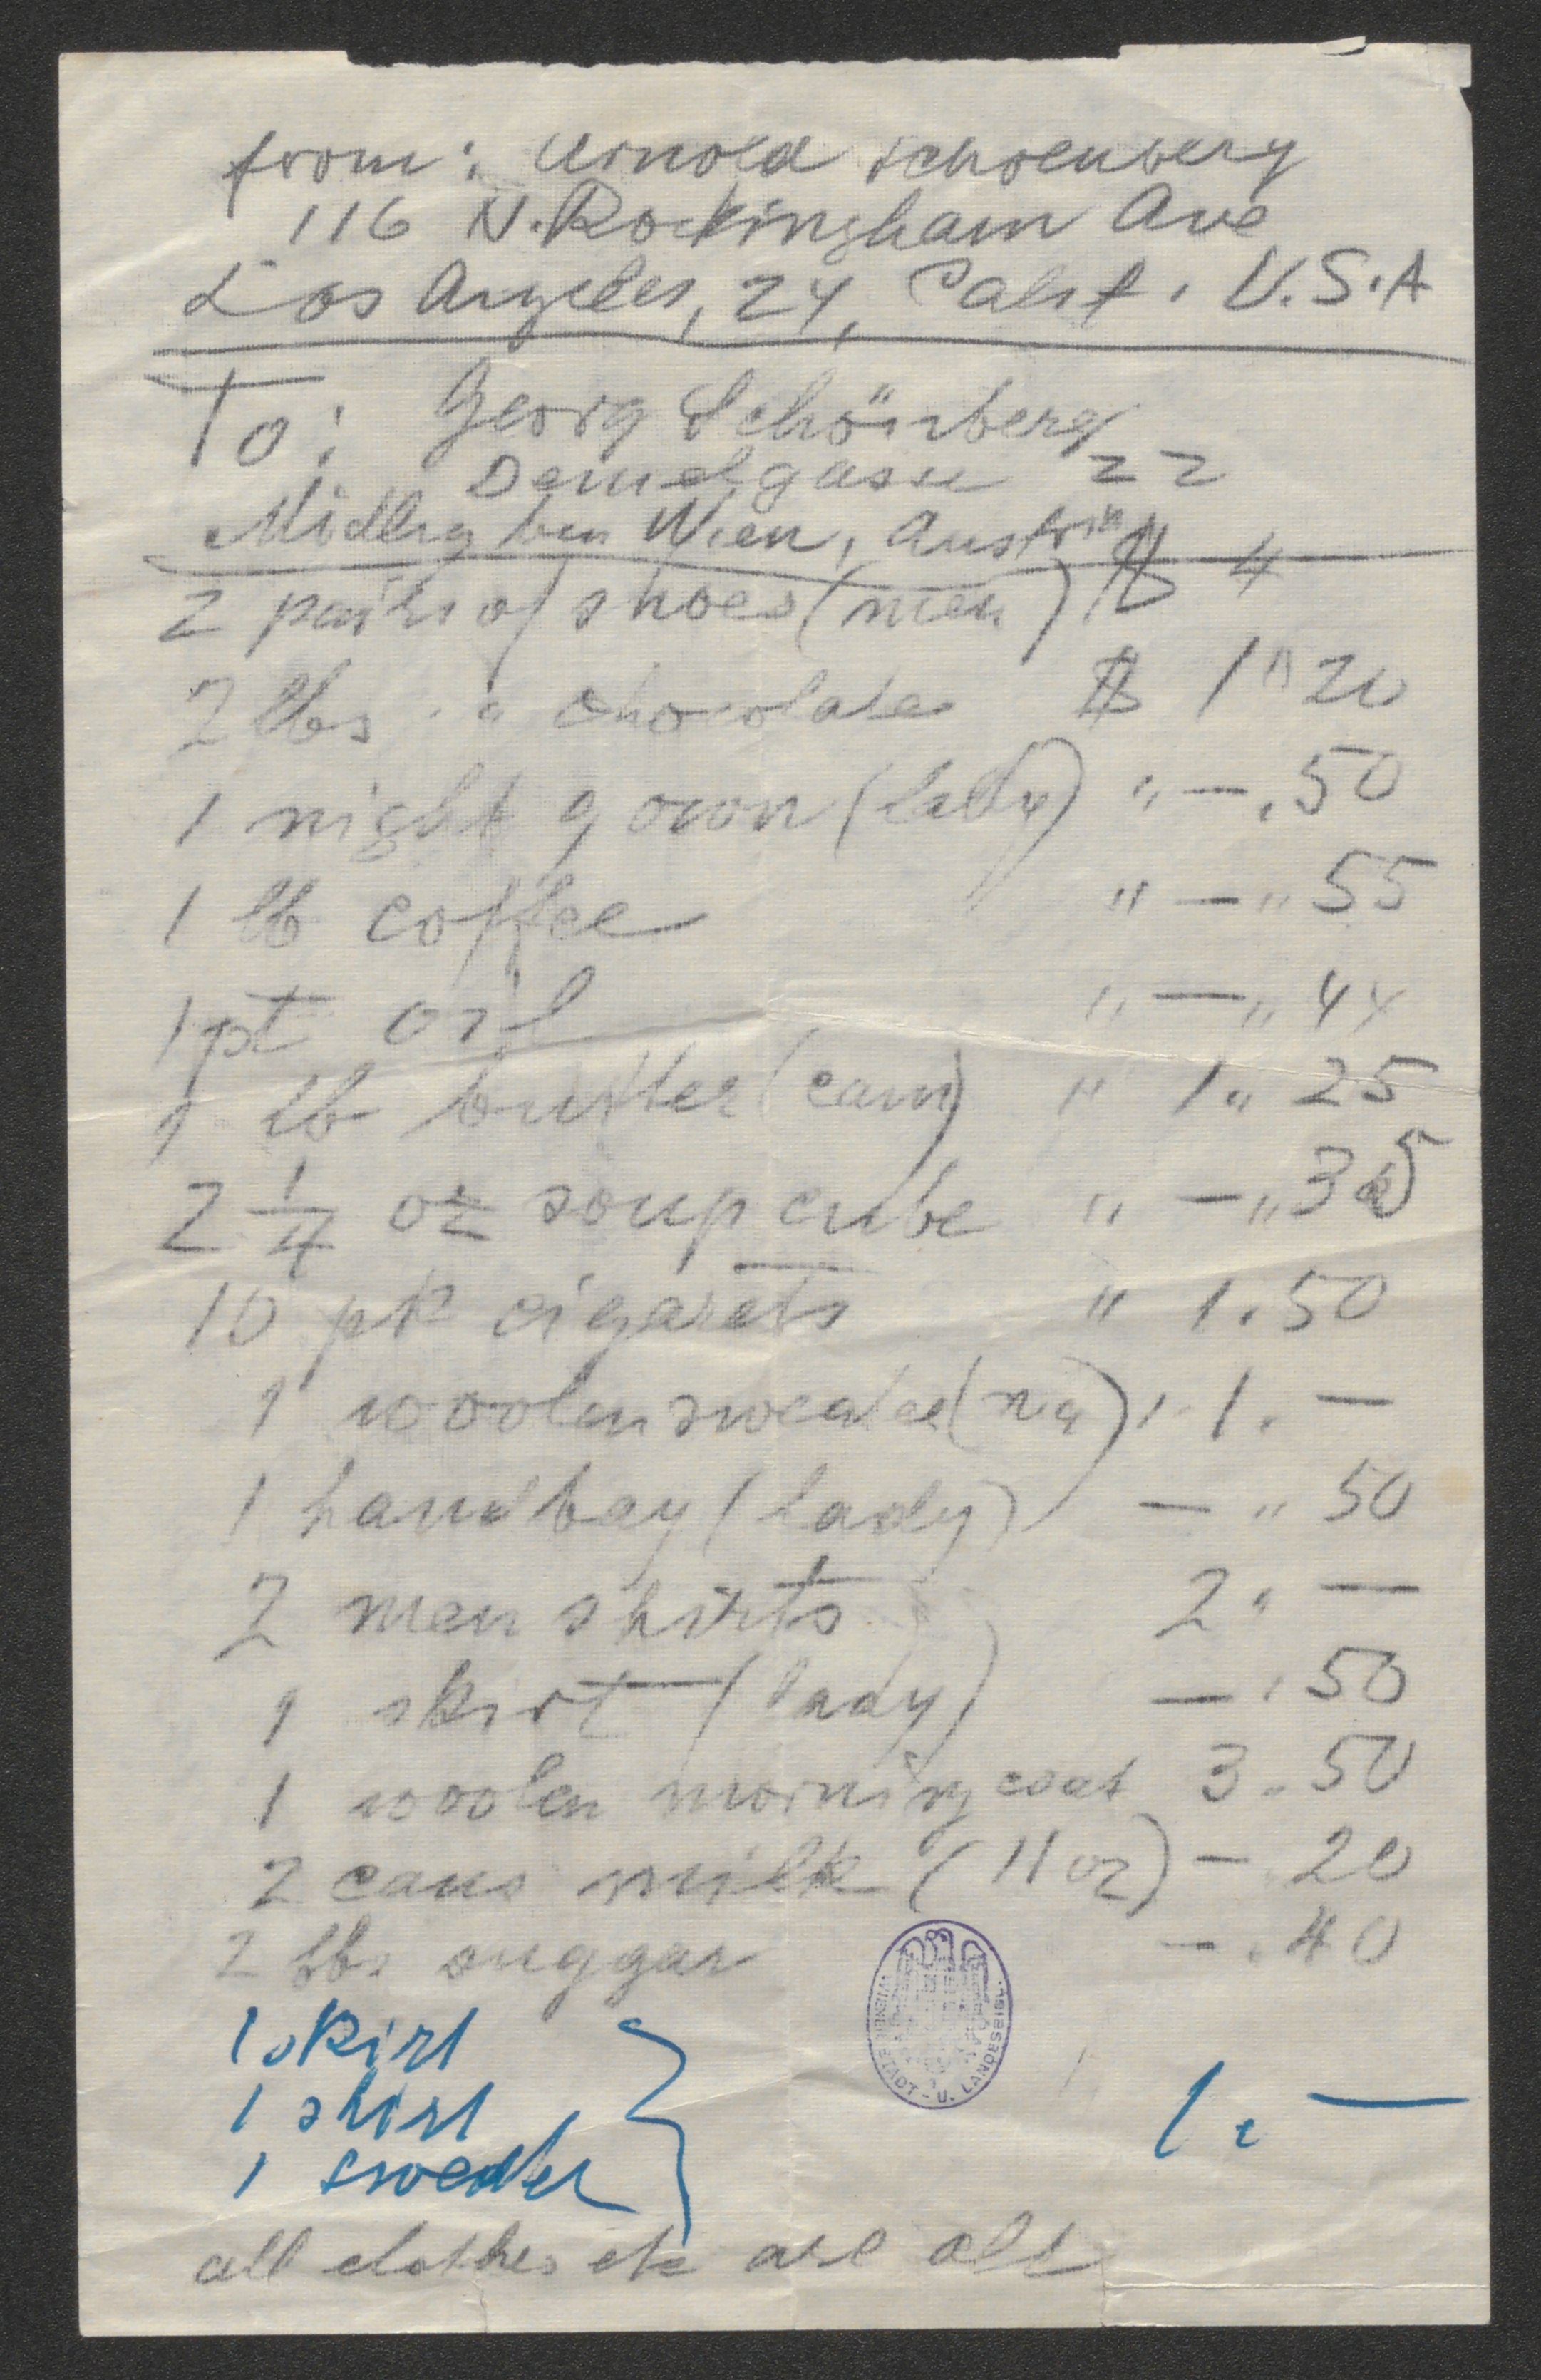 from: Arnold Schoenberg
116 N. Rockingham Ave
Los Angeles, 24, Calif. U.S.A
To: Georg Schönberg
Demelgasse 22
Mödling bei Wien, Austria
2 pairs of shoes (men) $ 4
2 lbs " chocolate $ 1 " 20
1 night gown (lady) " — . 50
1 lb coffee " — " 55
1 pt oil " — " 44
1 lb butter (can) " 1 " 25
2 1/4 oz soup cube " — " 35
10 pk cigarets " 1.50
1 woolen sweater 1. —
1 handbag (lady) — " 50
2 men shirts 2 " —
1 skirt (lady) — . 50
1 woolen morning coat 3.50
2 cans milk (11 oz) — 20
2 lbs suggar — . 40
1 skirt
1 shirt
1 sweater
1. —
all clothes etc are old
WIENER STADT - U. LANDESBIBL.